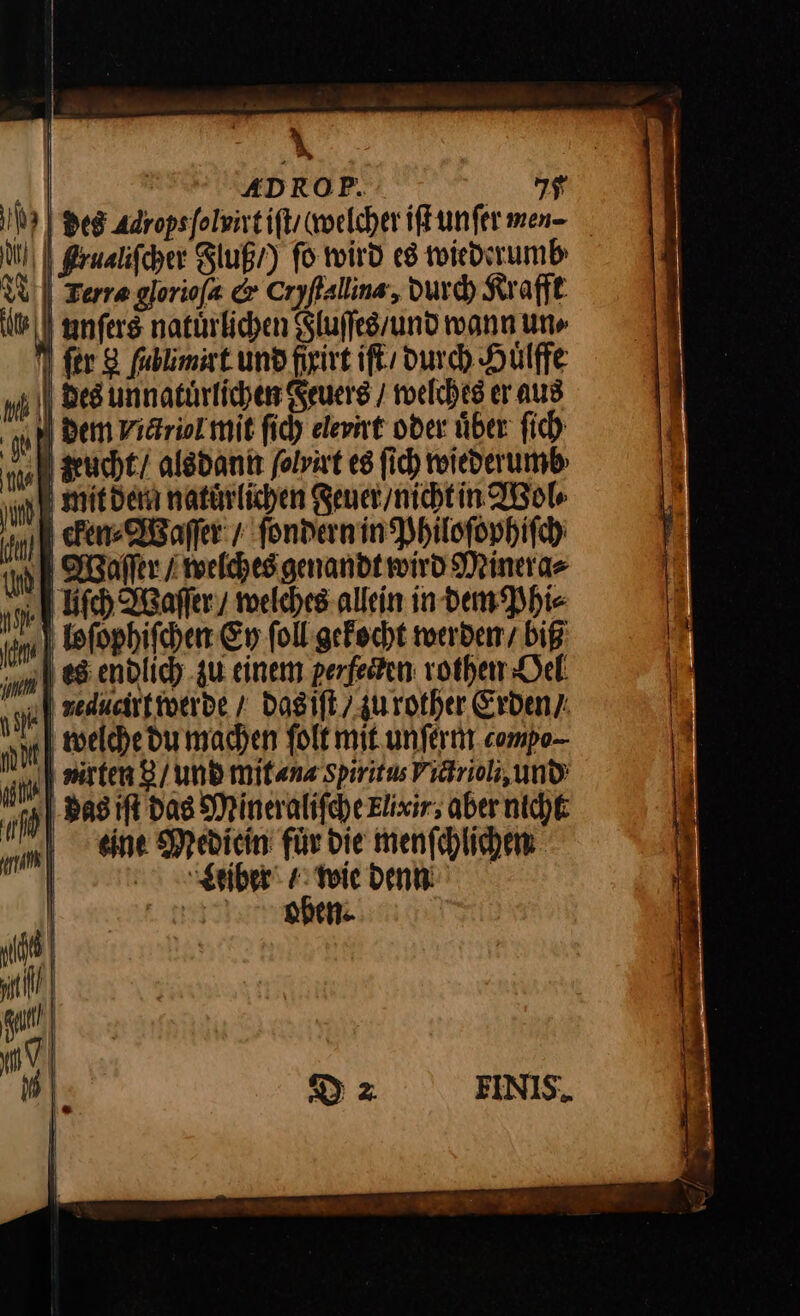 ADROP. 75
des Adrops ſolvirt iſt / (welcher iſt unſer men-
ſtrualiſcher Fluß /) ſo wird es wiederumb
Terra glorioſa & Cryſtallina, durch Krafft
unſers natuͤrlichen Fluſſes / und wann un-
ſer ☿ ſublimirt und fixirt iſt / durch Huͤlffe
des unnatuͤrlichen Feuers / welches er aus
dem Victriol mit ſich elevirt oder uͤber ſich
zeucht / alsdann ſolvirt es ſich wiederumb
mit dem natuͤrlichen Feuer / nicht in Wol-
cken-Waſſer / ſondern in Philoſophiſch
Waſſer / welches genandt wird Minera-
liſch Waſſer / welches allein in dem Phi-
loſophiſchen Ey ſoll gekocht werden / biß
es endlich zu einem perfecten rothen Oel
reducirt werde / das iſt / zu rother Erden /
welche du machen ſolt mit unſerm compo-
nirten ☿ / und mit ana Spiritus Victrioli, und
das iſt das Mineraliſche Elixir, aber nicht
eine Medicin fuͤr die menſchlichen
Leiber / wie denn
oben.
D 2 FINIS.